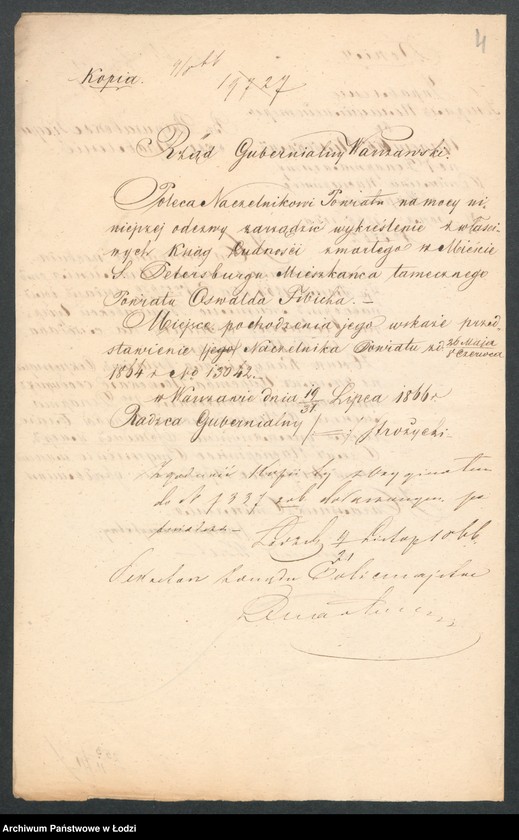 4
Kopia.
19727
Rząd Gubernialny Warszawski.
Poleca Naczelnikowi Powiatu na mocy ni-
niejszej odezwy zarządzić wykreślenie z właści-
wych Ksiąg ludności zmarłego w Mieście
S. Petersburgu Mieszkańca tamecznego
Powiatu Oswalda Fibicha. –
Miejsce pochodzenia jego wskaże przed-
stawienie /jego/ Naczelnika Powiatu z d. 26 Maja / 7 Czerwca
1864 r No 13042.
w Warszawie dnia 19/31 Lipca 1866 r
Radzca Gubernialny /—/ Strożycki.
Zgodność Kopii tej z Oryginałem
do No 1327 dołączonym po-
świadcza –
9/21 Listop 1866
Sekretarz Zarządu Policmajstra
Archiwum Państwowe w Łodzi